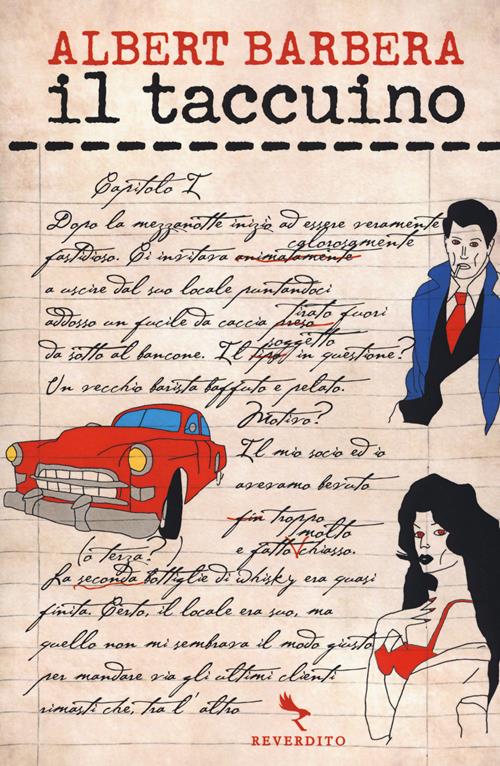 ALBERT BARBERA
il taccuino
Capitolo I
Dopo la mezzanotte iniziò ad essere veramente
calorosamente
fastidioso. Ci invitava animatamente
a uscire dal suo locale puntandoci
tirato fuori
addosso un fucile da caccia preso
soggetto
da sotto al bancone. Il tipo in questione?
Un vecchio barista baffuto e pelato.
Motivo?
Il mio socio ed io
avevamo bevuto
fin troppo
molto
e fatto chiasso.
(o terza?)
La seconda bottiglie di whisky era quasi
finita. Certo, il locale era suo, ma
quello non mi sembrava il modo giusto
per mandare via gli ultimi clienti
rimasti che, tra l'altro
REVERDITO